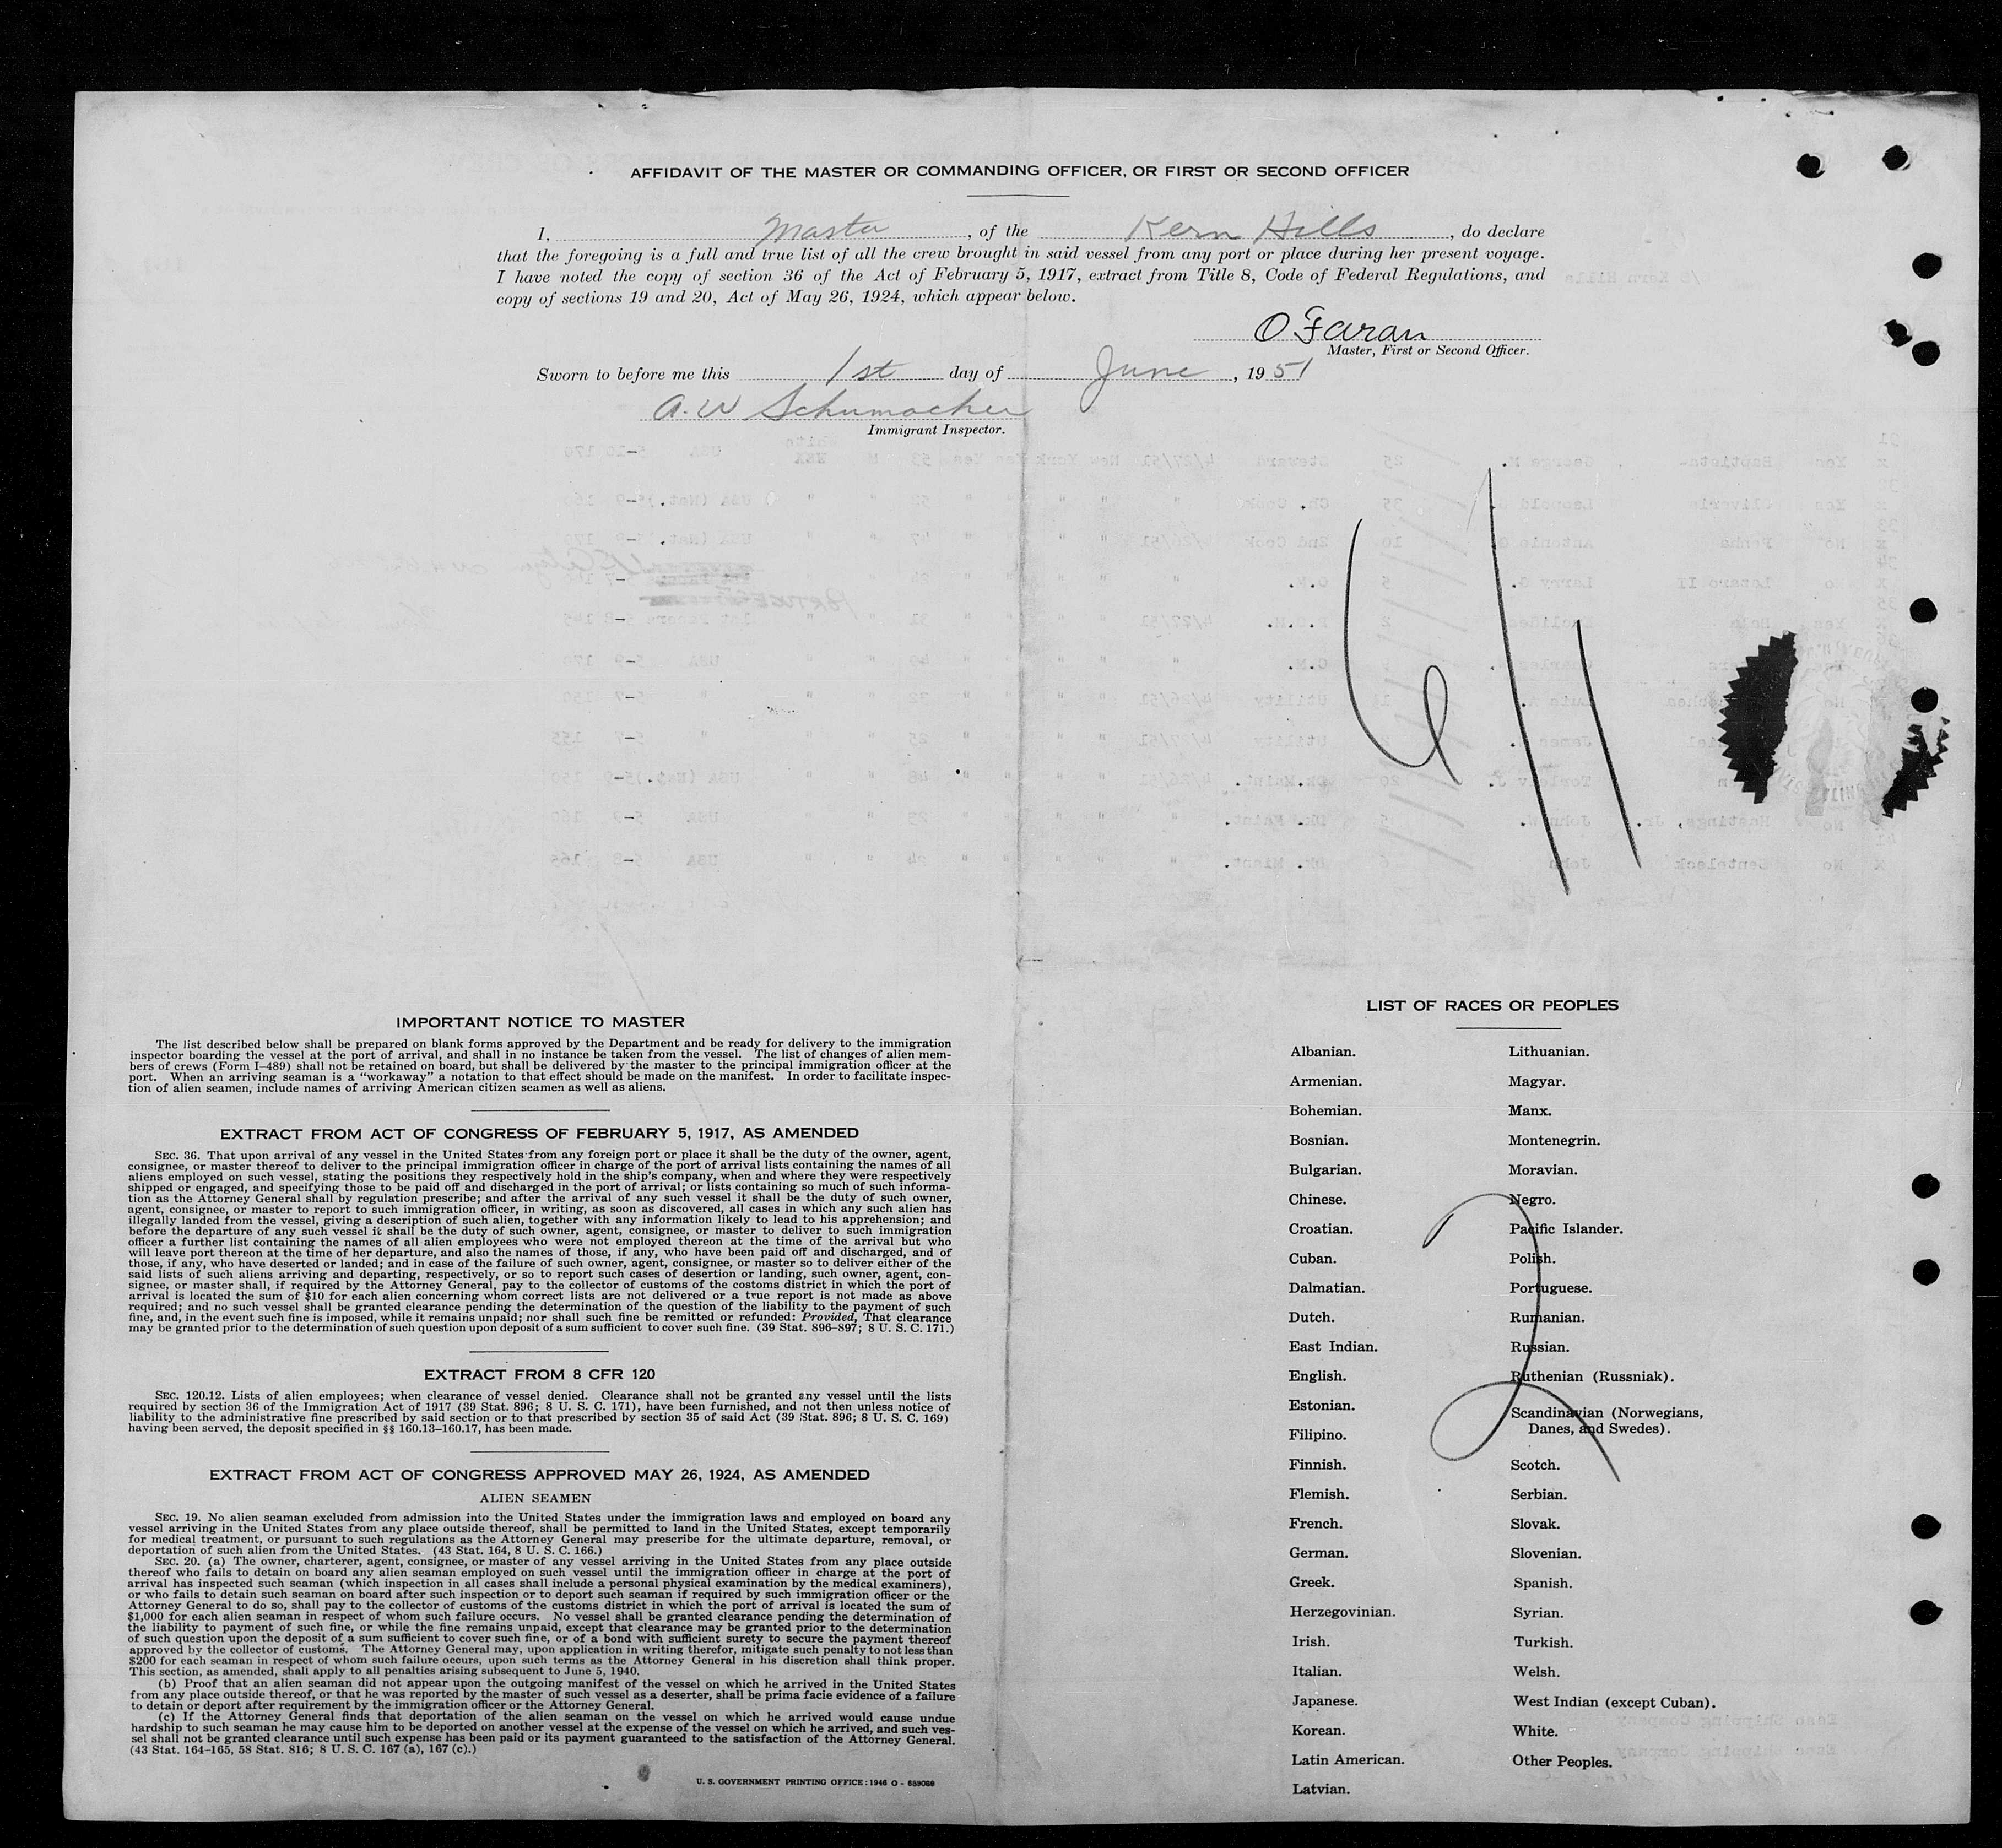 AFFIDAVIT OF THE MASTER OR COMMANDING OFFICER, OR FIRST OR SECOND OFFICER
I, Master, of the Kern Hills, do declare
that the foregoing is a full and true list of all the crew brought in said vessel from any port or place during her present voyage.
I have noted the copy of section 36 of the Act of February 5, 1917, extract from Title 8, Code of Federal Regulations, and
copy of sections 19 and 20, Act of May 26, 1924, which appear below.
O Faran
Master, First or Second Officer.
Sworn to before me this 1st day of June, 1951
A. W Schumacher
Immigrant Inspector.
6/1
IMPORTANT NOTICE TO MASTER
The list described below shall be prepared on blank forms approved by the Department and be ready for delivery to the immigration
inspector boarding the vessel at the port of arrival, and shall in no instance be taken from the vessel. The list of changes of alien mem-
bers of crews (Form I–489) shall not be retained on board, but shall be delivered by the master to the principal immigration officer at the
port. When an arriving seaman is a “workaway” a notation to that effect should be made on the manifest. In order to facilitate inspec-
tion of alien seamen, include names of arriving American citizen seamen as well as aliens.
EXTRACT FROM ACT OF CONGRESS OF FEBRUARY 5, 1917, AS AMENDED
SEC. 36. That upon arrival of any vessel in the United States from any foreign port or place it shall be the duty of the owner, agent,
consignee, or master thereof to deliver to the principal immigration officer in charge of the port of arrival lists containing the names of all
aliens employed on such vessel, stating the positions they respectively hold in the ship's company, when and where they were respectively
shipped or engaged, and specifying those to be paid off and discharged in the port of arrival; or lists containing so much of such informa-
tion as the Attorney General shall by regulation prescribe; and after the arrival of any such vessel it shall be the duty of such owner,
agent, consignee, or master to report to such immigration officer, in writing, as soon as discovered, all cases in which any such alien has
illegally landed from the vessel, giving a description of such alien, together with any information likely to lead to his apprehension; and
before the departure of any such vessel it shall be the duty of such owner, agent, consignee, or master to deliver to such immigration
officer a further list containing the names of all alien employees who were not employed thereon at the time of the arrival but who
will leave port thereon at the time of her departure, and also the names of those, if any, who have been paid off and discharged, and of
those, if any, who have deserted or landed; and in case of the failure of such owner, agent, consignee, or master so to deliver either of the
said lists of such aliens arriving and departing, respectively, or so to report such cases of desertion or landing, such owner, agent, con-
signee, or master shall, if required by the Attorney General, pay to the collector of customs of the costoms district in which the port of
arrival is located the sum of $10 for each alien concerning whom correct lists are not delivered or a true report is not made as above
required; and no such vessel shall be granted clearance pending the determination of the question of the liability to the payment of such
fine, and, in the event such fine is imposed, while it remains unpaid; nor shall such fine be remitted or refunded: Provided, That clearance
may be granted prior to the determination of such question upon deposit of a sum sufficient to cover such fine. (39 Stat. 896–897; 8 U. S. C. 171.)
EXTRACT FROM 8 CFR 120
SEC. 120.12. Lists of alien employees; when clearance of vessel denied. Clearance shall not be granted any vessel until the lists
required by section 36 of the Immigration Act of 1917 (39 Stat. 896; 8 U. S. C. 171), have been furnished, and not then unless notice of
liability to the administrative fine prescribed by said section or to that prescribed by section 35 of said Act (39 Stat. 896; 8 U. S. C. 169)
having been served, the deposit specified in §§ 160.13–160.17, has been made.
EXTRACT FROM ACT OF CONGRESS APPROVED MAY 26, 1924, AS AMENDED
ALIEN SEAMEN
SEC. 19. No alien seaman excluded from admission into the United States under the immigration laws and employed on board any
vessel arriving in the United States from any place outside thereof, shall be permitted to land in the United States, except temporarily
for medical treatment, or pursuant to such regulations as the Attorney General may prescribe for the ultimate departure, removal, or
deportation of such alien from the United States. (43 Stat. 164, 8 U. S. C. 166.)
SEC. 20. (a) The owner, charterer, agent, consignee, or master of any vessel arriving in the United States from any place outside
thereof who fails to detain on board any alien seaman employed on such vessel until the immigration officer in charge at the port of
arrival has inspected such seaman (which inspection in all cases shall include a personal physical examination by the medical examiners),
or who fails to detain such seaman on board after such inspection or to deport such seaman if required by such immigration officer or the
Attorney General to do so, shall pay to the collector of customs of the customs district in which the port of arrival is located the sum of
$1,000 for each alien seaman in respect of whom such failure occurs. No vessel shall be granted clearance pending the determination of
the liability to payment of such fine, or while the fine remains unpaid, except that clearance may be granted prior to the determination
of such question upon the deposit of a sum sufficient to cover such fine, or of a bond with sufficient surety to secure the payment thereof
approved by the collector of customs. The Attorney General may, upon application in writing therefor, mitigate such penalty to not less than
$200 for each seaman in respect of whom such failure occurs, upon such terms as the Attorney General in his discretion shall think proper.
This section, as amended, shall apply to all penalties arising subsequent to June 5, 1940.
(b) Proof that an alien seaman did not appear upon the outgoing manifest of the vessel on which he arrived in the United States
from any place outside thereof, or that he was reported by the master of such vessel as a deserter, shall be prima facie evidence of a failure
to detain or deport after requirement by the immigration officer or the Attorney General.
(c) If the Attorney General finds that deportation of the alien seaman on the vessel on which he arrived would cause undue
hardship to such seaman he may cause him to be deported on another vessel at the expense of the vessel on which he arrived, and such ves-
sel shall not be granted clearance until such expense has been paid or its payment guaranteed to the satisfaction of the Attorney General.
(43 Stat. 164–165, 58 Stat. 816; 8 U. S. C. 167 (a), 167 (c).)
U. S. GOVERNMENT PRINTING OFFICE : 1946 O - 689066
LIST OF RACES OR PEOPLES
Albanian.
Armenian.
Bohemian.
Bosnian.
Bulgarian.
Chinese.
Croatian.
Cuban.
Dalmatian.
Dutch.
East Indian.
English.
Estonian.
Filipino.
Finnish.
Flemish.
French.
German.
Greek.
Herzegovinian.
Irish.
Italian.
Japanese.
Korean.
Latin American.
Latvian.
Lithuanian.
Magyar.
Manx.
Montenegrin.
Moravian.
Negro.
Pacific Islander.
Polish.
Portuguese.
Rumanian.
Russian.
Ruthenian (Russniak).
Scandinavian (Norwegians,
Danes, and Swedes).
Scotch.
Serbian.
Slovak.
Slovenian.
Spanish.
Syrian.
Turkish.
Welsh.
West Indian (except Cuban).
White.
Other Peoples.
2